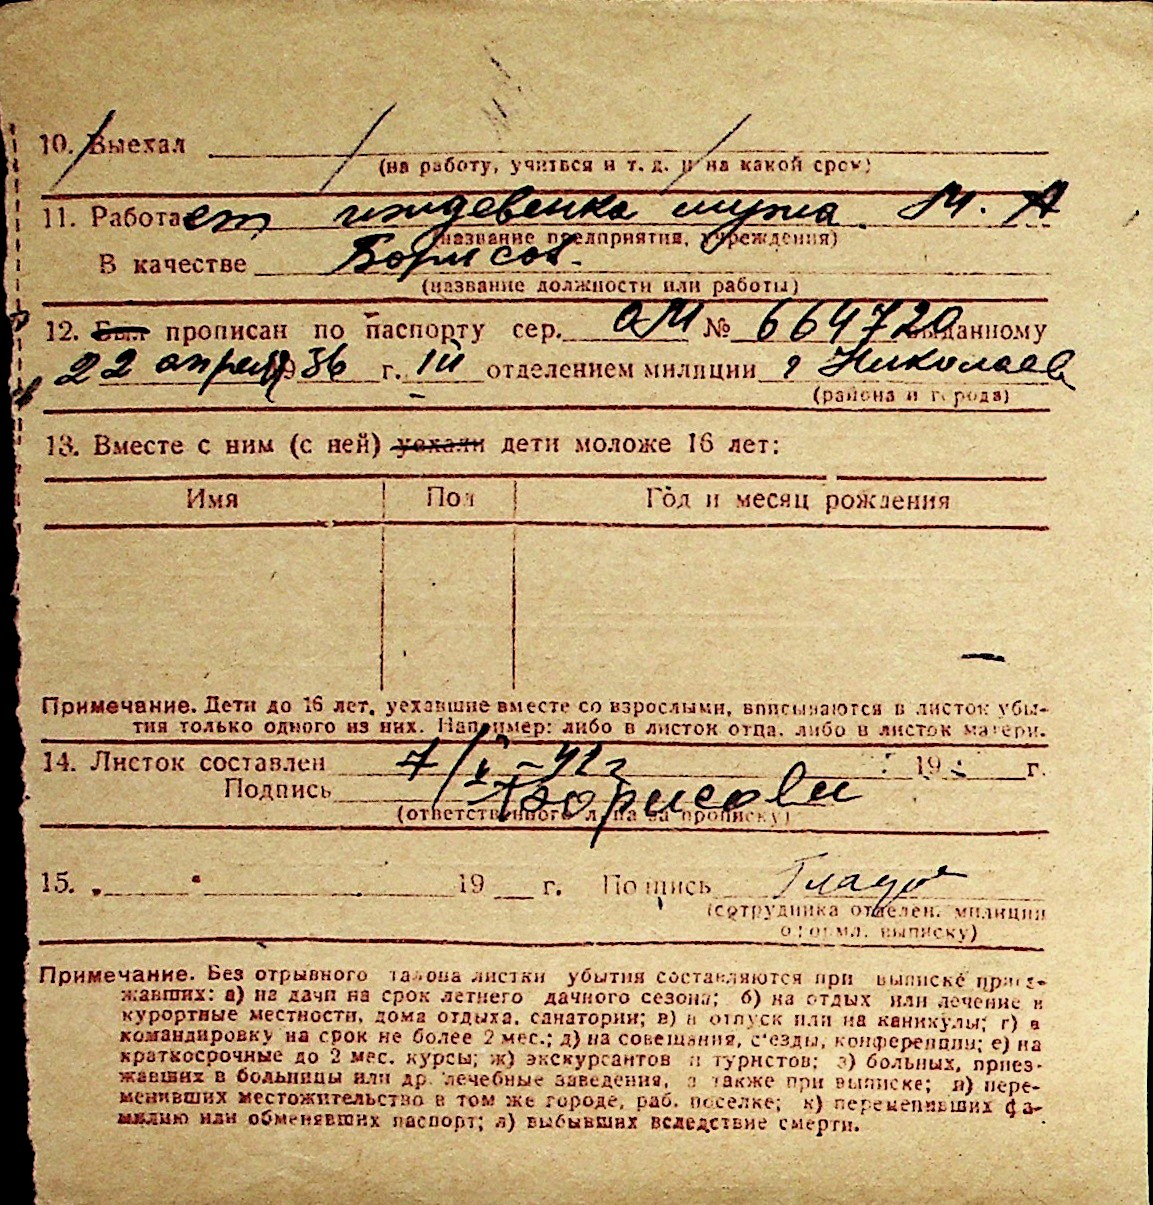 10. Выехал
(на работу, учиться и т. д. и на какой срок)
11. Работает иждевенка мужа М. А
(название предприятия, учреждения)
В качестве Борисов.
(название должности или работы)
12. Был прописан по паспорту сер. ОМ № 664720 выданному
22 апреля 1936 г. III отделением милиции г Николаев
(района и города)
13. Вместе с ним (с ней) уехали дети моложе 16 лет:
Имя Пол Год и месяц рождения
Примечание. Дети до 16 лет, уехавшие вместе со взрослыми, вписываются в листок убы-
тия только одного из них. Например: либо в листок отца, либо в листок матери.
14. Листок составлен 7/V-42г 19 г.
Подпись Борисова
(ответственного лица за прописку)
15. 19 г. Подпись
(сотрудника отделен. милиции
оформл. выписку)
Примечание. Без отрывного талона листки убытия составляются при выписке приез-
жавших: а) на дачи на срок летнего дачного сезона; б) на отдых или лечение в
курортные местности, дома отдыха, санатории; в) в отпуск или на каникулы; г) в
командировку на срок не более 2 мес.; д) на совещания, с'езды, конференции; е) на
краткосрочные до 2 мес. курсы; ж) экскурсантов и туристов; з) больных, приез-
жавших в больницы или др. лечебные заведения, а также при выписке; и) пере-
менивших местожительство в том же городе, раб. поселке; к) переменивших фа-
милию или обменявших паспорт; л) выбывших вследствие смерти.